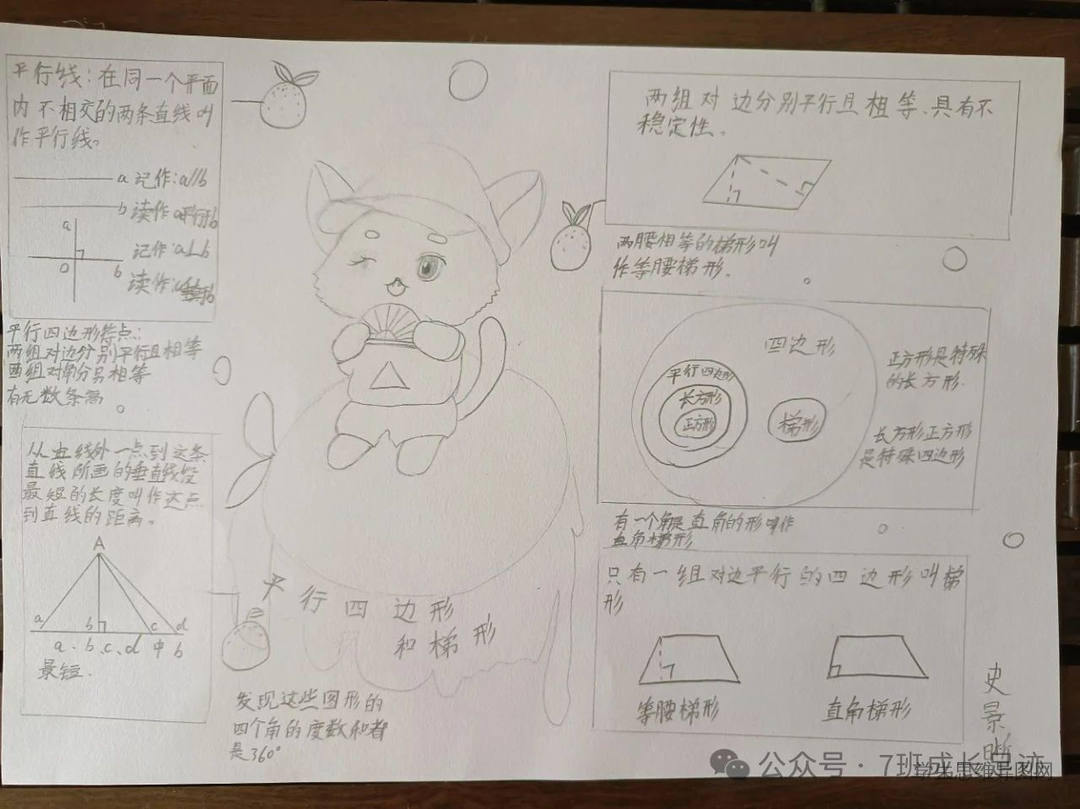 平行线：在同一个平面
内不相交的两条直线叫
作平行线。
a 记作：a//b
b 读作
a
记作：a⊥b
O b
读作：
平行四边形特点：
两组对边分别平行且相等
两组对角分另相等
有无数条高
从直线外一点到这条
直线所画的垂直线段
最短的长度叫作这点
到直线的距离。
A
a b c d
a、b、c、d中b
最短.
平行四边形
和梯形
发现这些图形的
四个角的度数和都
是360°
两组对边分别平行且相等、具有不
稳定性。
两腰相等的梯形叫
作等腰梯形.
四边形
平行四边形
长方形
正方形
梯形
正方形是特殊
的长方形.
长方形正方形
是特殊四边形
有一个角是直角的形叫作
直角梯形
只有一组对边平行的四边形叫梯
形
等腰梯形
直角梯形
史景
公众号·7班成长足迹
学生思维导图网